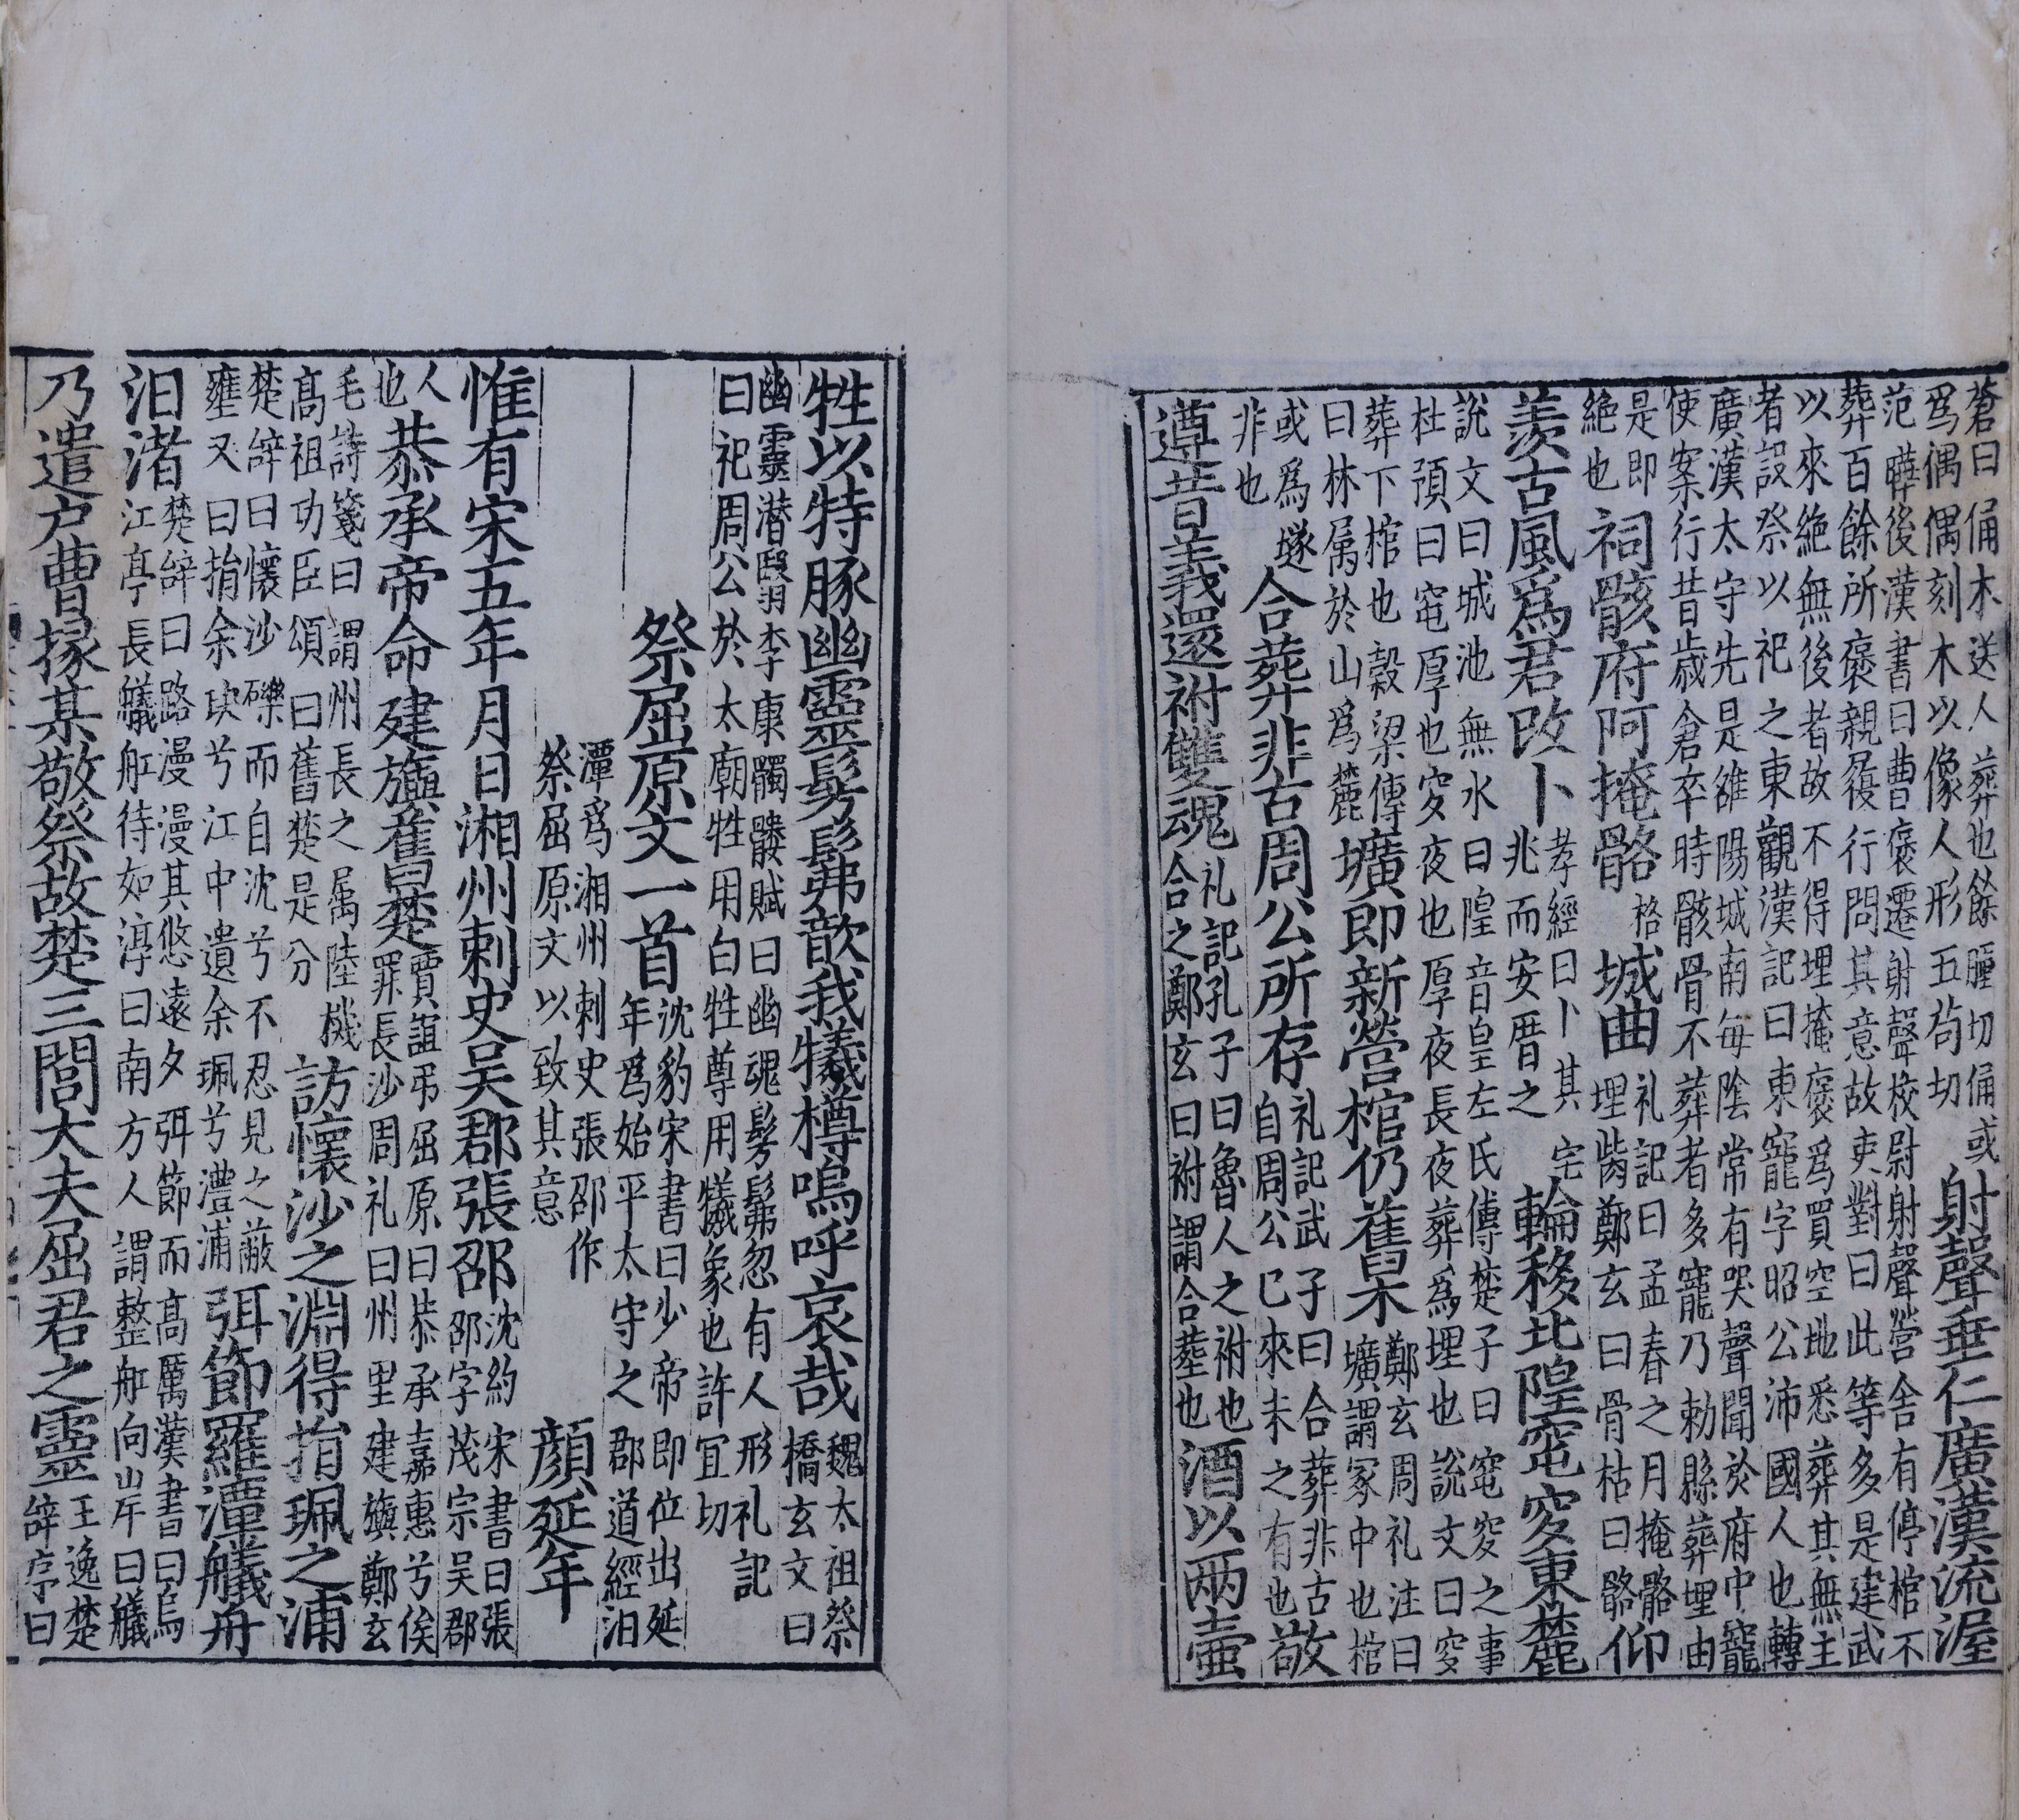 蒼曰俑木送人葬也餘腫切俑或
爲偶偶刻木以像人形五苟切
射聲垂仁廣漢流渥
范曄後漢書曰曹褒遷射聲校尉射聲營舍有停棺不
葬百餘所褒親履行問其意故吏對曰此等多是建武
以來絶無後者故不得埋掩褒爲買空地悉葬其無主
者設祭以祀之東觀漢記曰東寵字昭公沛國人也轉
廣漢太守先是雒陽城南每陰常有哭聲聞於府中寵
使案行昔歲倉卒時骸骨不葬者多寵乃勑縣葬埋由
是即
絶也
祠骸府阿掩骼
格
城曲
礼記曰孟春之月掩骼
埋胔鄭玄曰骨枯曰骼
仰
羨古風爲君改卜
孝經曰卜其宅
兆而安厝之
輪移北隍窀穸東麓
說文曰城池無水曰隍音皇左氏傳楚子曰窀穸之事
杜預曰窀厚也穸夜也厚夜長夜葬爲埋也說文曰穸
葬下棺也穀梁傳
曰林属於山爲麓
壙即新營棺仍舊木
鄭玄周礼注曰
壙謂冢中也棺
或爲墜
非也
合葬非古周公所存
礼記武子曰合葬非古
自周公已來未之有也
敬
遵昔義還祔雙魂
礼記孔子曰魯人之祔也
合之鄭玄曰祔謂合葬也
酒以兩壷
牲以特豚幽靈髣髴歆我犧樽嗚呼哀哉
魏太祖祭
橋玄文曰
幽靈潜翳李康髑髏賦曰幽魂髣髴忽有人形礼記
曰祀周公於太廟牲用白牲尊用犧象也許宜切
祭屈原文一首
沈豹宋書曰少帝即位出延
年爲始平太守之郡道經汨
潭爲湘州刺史張邵作
祭屈原文以致其意
顔延年
惟有宋五年月日湘州刺史吴郡張邵
沈約宋書曰張
邵字茂宗吴郡
人
也
恭承帝命建旟舊楚
賈誼弔屈原曰恭承嘉惠兮俟
罪長沙周礼曰州里建旟鄭玄
毛詩箋曰謂州長之属陸機
高祖功臣頌曰舊楚是分
訪懷沙之淵得捐珮之浦
楚辞曰懷沙礫而自沈兮不忍見之蔽
壅又曰捐余玦兮江中遺余珮兮澧浦
弭節羅潭艤舟
汨渚
楚辞曰路漫漫其悠遠夕弭節而高厲漢書曰烏
江亭長艤舡待如淳曰南方人謂整舡向岸曰艤
乃遣户曹掾某敬祭故楚三閭大夫屈君之靈
王逸楚
辞序曰